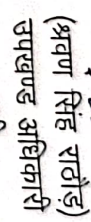 (श्रवण सिंह राठौड़)
उपखण्ड अधिकारी